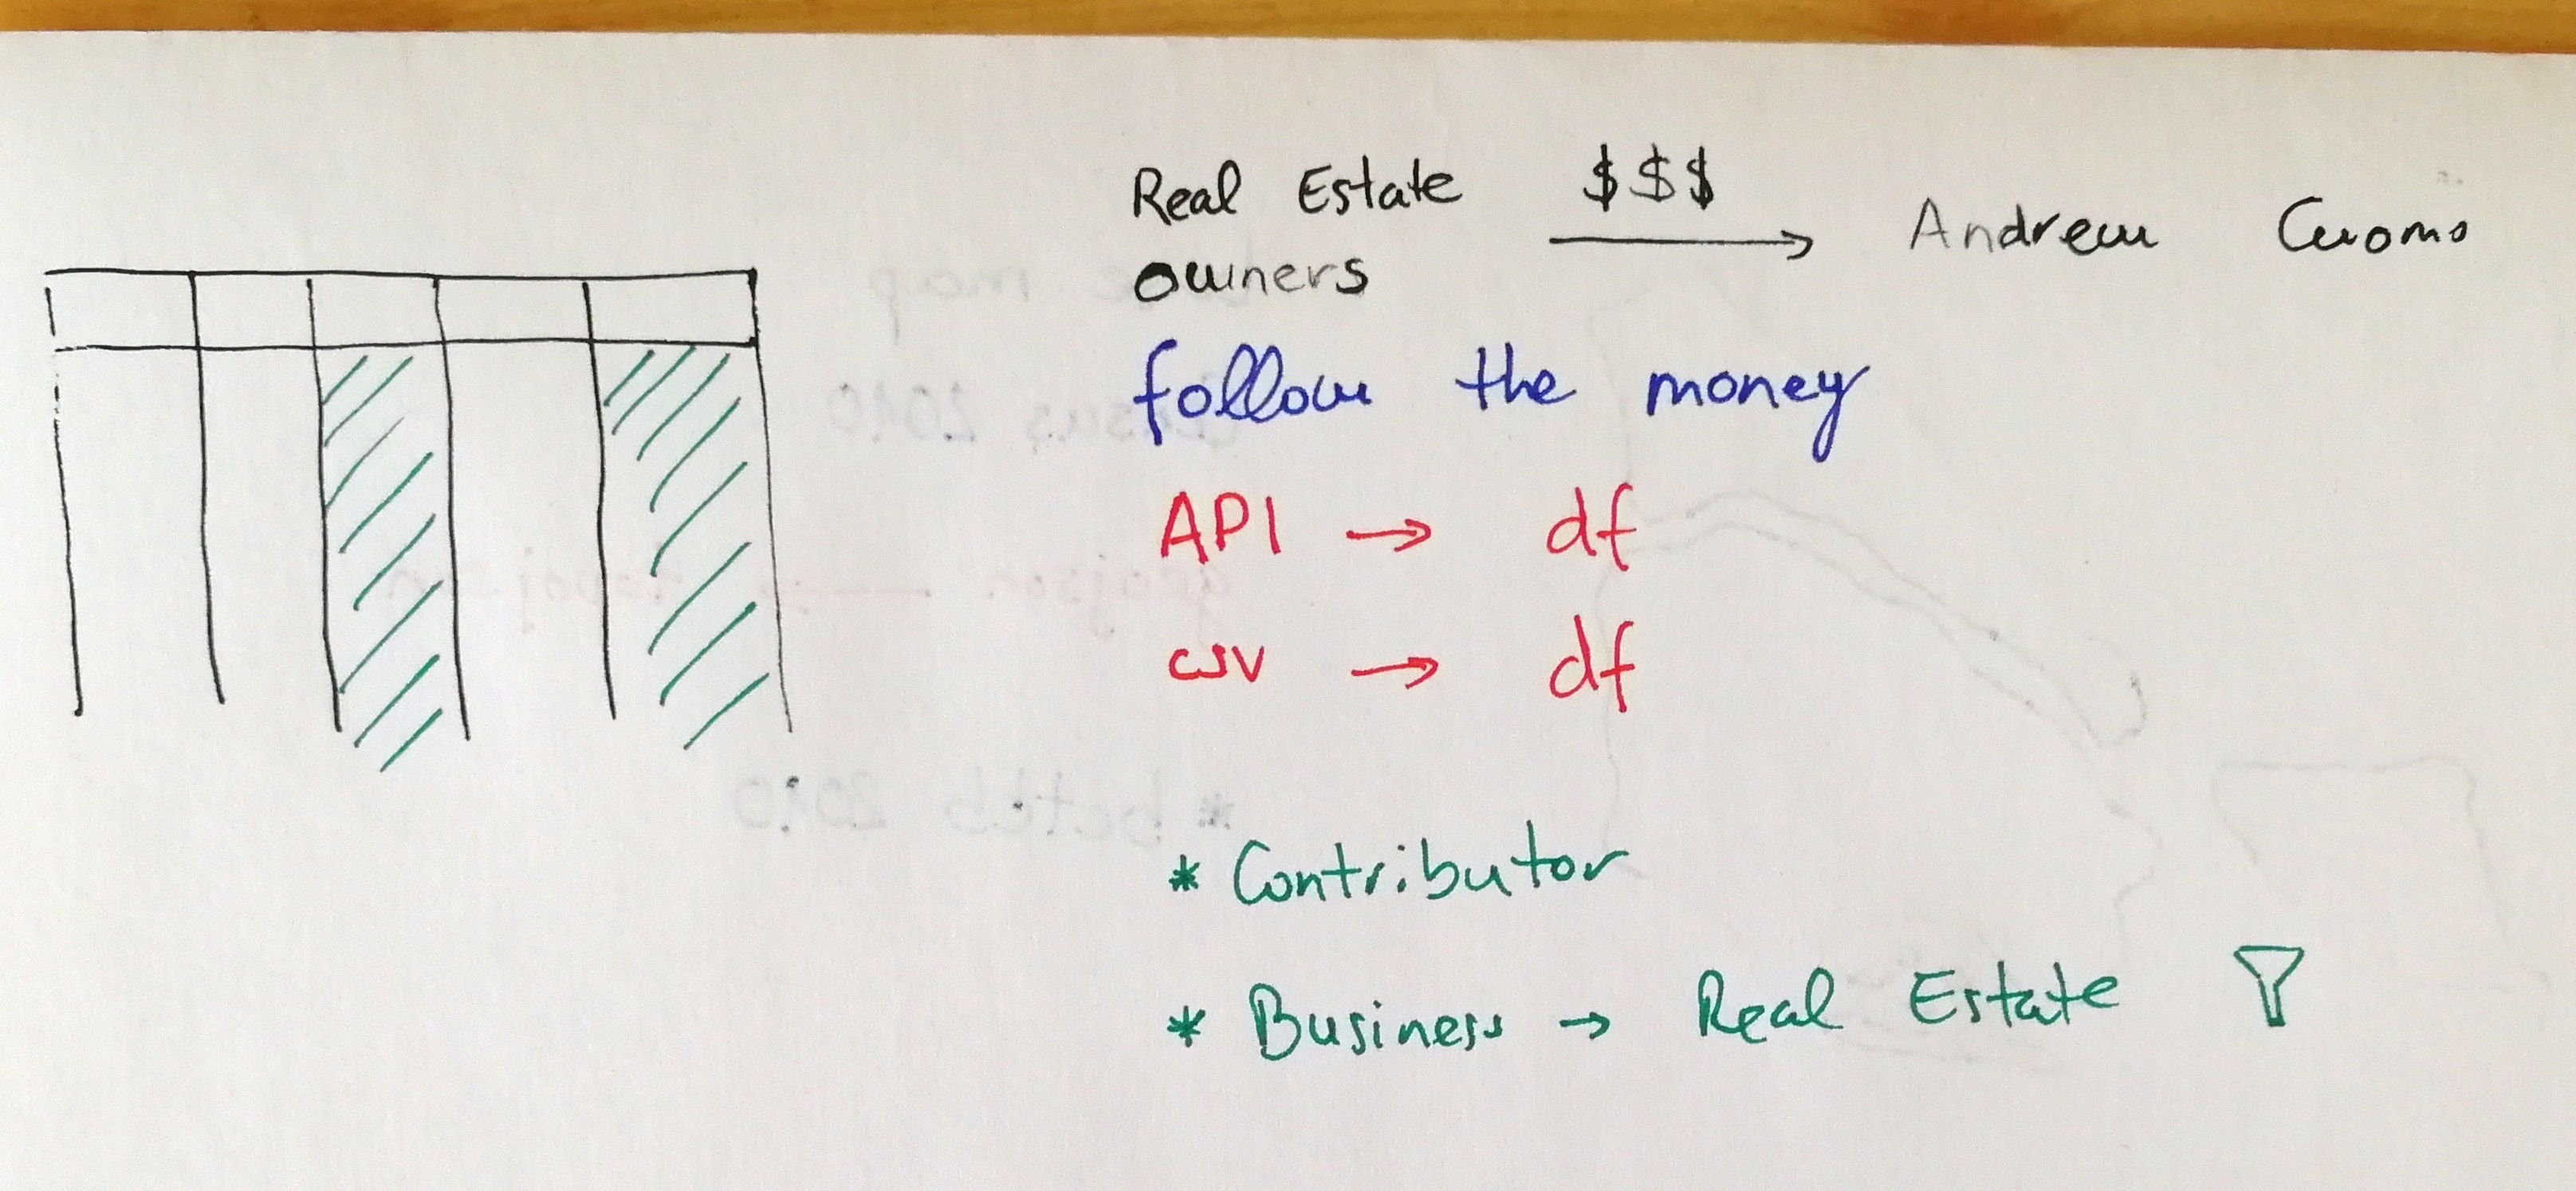 Real Estate $$$ → Andrew Cuomo
owners
follow the money
API → df
csv → df
* Contributor
* Business → Real Estate